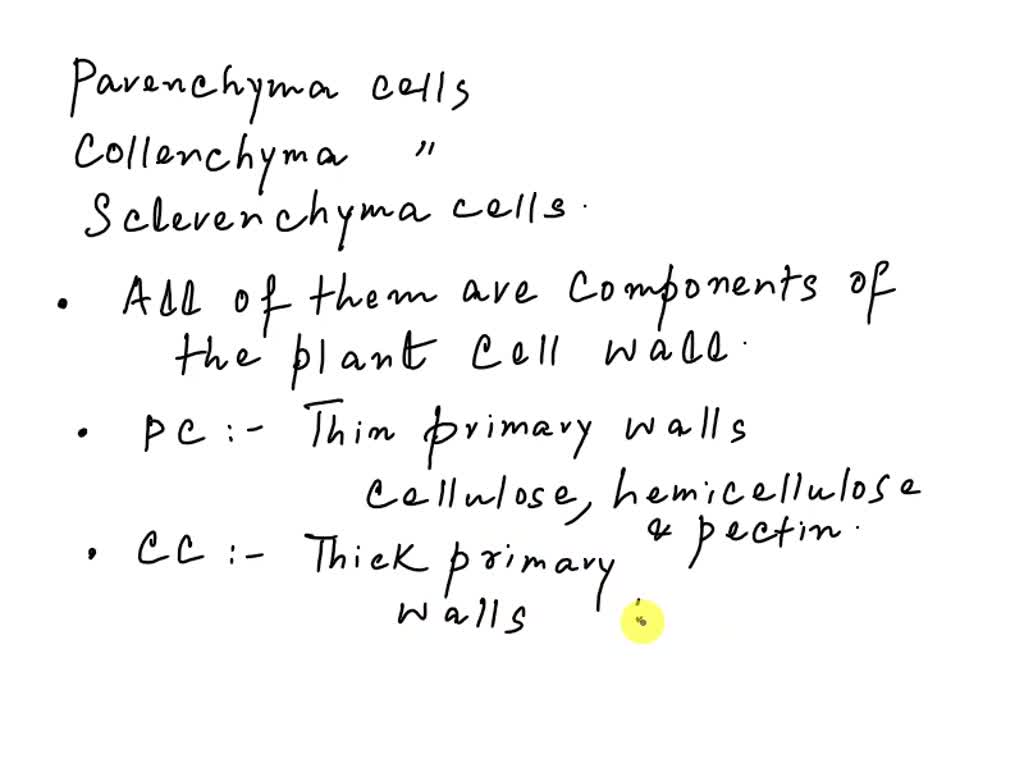 Parenchyma cells
Collenchyma "
Sclerenchyma cells.
• All of them are components of
the plant cell wall.
• PC :- Thin primary walls
cellulose, hemicellulose
& pectin.
• CC :- Thick primary
walls